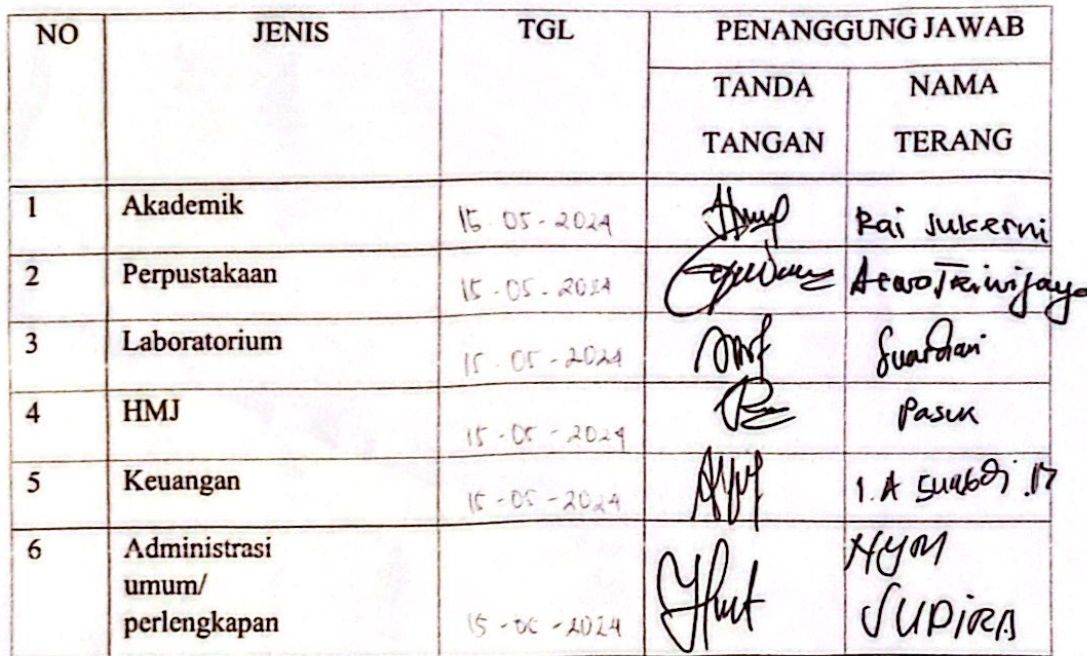 NO JENIS TGL PENANGGUNG JAWAB
TANDA NAMA
TANGAN TERANG
1 Akademik 15-05-2024 Rai Sukerni
2 Perpustakaan 15-05-2024
3 Laboratorium 15-05-2024 Suardiani
4 HMJ 15-05-2024 Pasuk
5 Keuangan 15-05-2024 I.A
6 Administrasi NYM
umum/
perlengkapan 15-05-2024 SUDIRA